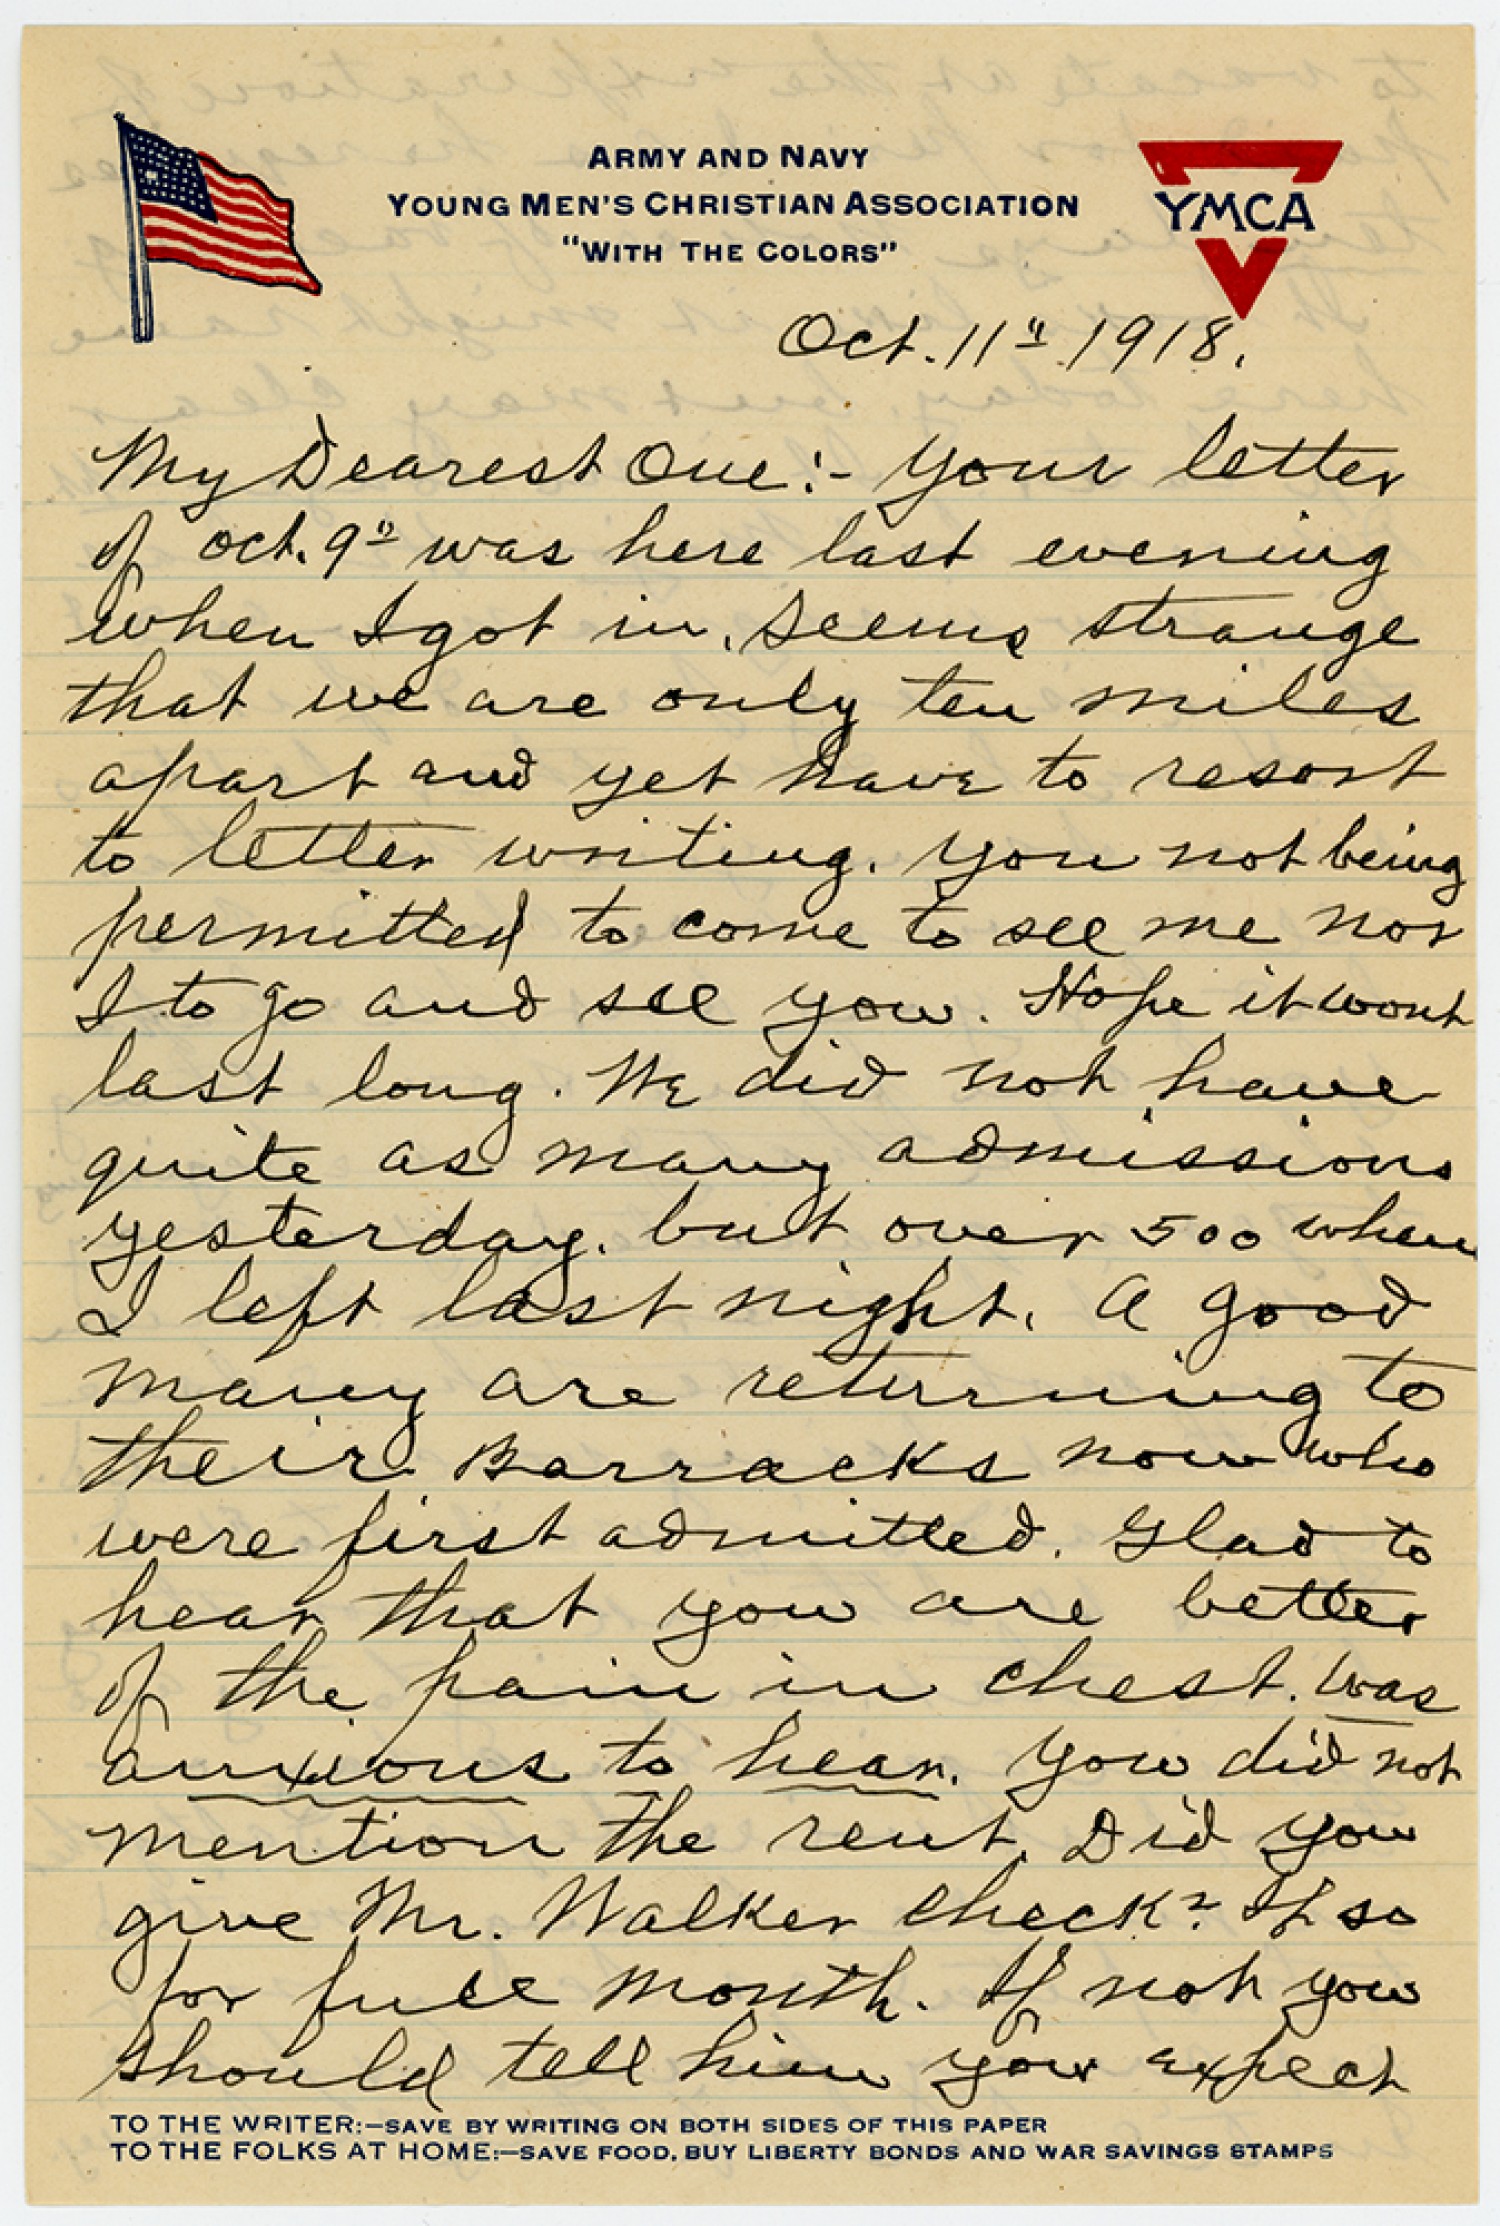 ARMY AND NAVY
YOUNG MEN'S CHRISTIAN ASSOCIATION
"WITH THE COLORS"
YMCA
Oct. 11" 1918.
My Dearest One:- Your letter
of Oct. 9" was here last evening
when I got in. Seems strange
that we are only ten miles
apart and yet have to resort
to letter writing. You not being
permitted to come to see me nor
I to go and see you. Hope it wont
last long. We did not have
quite as many admissions
yesterday. but over 500 when
I left last night. A good
many are returning to
their Barracks now who
were first admitted. Glad to
hear that you are better
of the pain in chest. was
anxious to hear. You did not
mention the rent. Did you
give Mr. Walker check? If so
for full month. If not you
should tell him you expect
TO THE WRITER:—SAVE BY WRITING ON BOTH SIDES OF THIS PAPER
TO THE FOLKS AT HOME:—SAVE FOOD, BUY LIBERTY BONDS AND WAR SAVINGS STAMPS